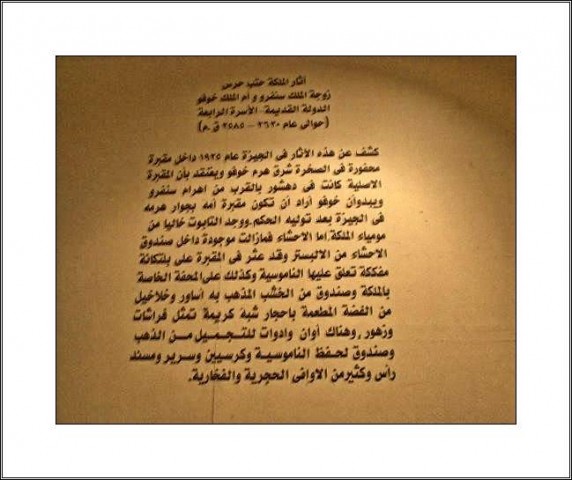 آثار الملكة حتب حرس
زوجة الملك سنفرو و أم الملك خوفو
الدولة القديمة - الأسرة الرابعة
(حوالى عام ٢٦٢٠ - ٢٥٨٥ ق.م)
كشف عن هذه الآثار فى الجيزة عام ١٩٢٥ داخل مقبرة
محفورة فى الصخرة شرق هرم خوفو ويعتقد بأن المقبرة
الاصلية كانت فى دهشور بالقرب من اهرام سنفرو
ويبدوأن خوفو أراد أن تكون مقبرة أمه بجوار هرمه
فى الجيزة بعد توليه الحكم.ووجد التابوت خاليا من
مومياء الملكة.اما الاحشاء فمازالت موجودة داخل صندوق
الاحشاء من الالبستر وقد عثر فى المقبرة على بلتكانة
مفككة تعلق عليها الناموسية وكذلك على المحفة الخاصة
بالملكة وصندوق من الخشب المذهب به أساور وخلاخيل
من الفضة المطعمة باحجار شبة كريمة تمثل فراشات
وزهور , وهناك أوان وادوات للتجميل من الذهب
وصندوق لحفظ الناموسية وكرسيين وسرير ومسند
رأس وكثيرمن الاوانى الحجرية والفخارية.